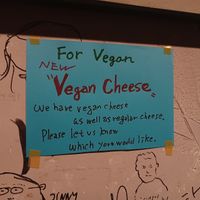 For Vegan
NEW
"Vegan Cheese"
We have vegan cheese
as well as regular cheese.
Please let us know
which you would like.
JENNY